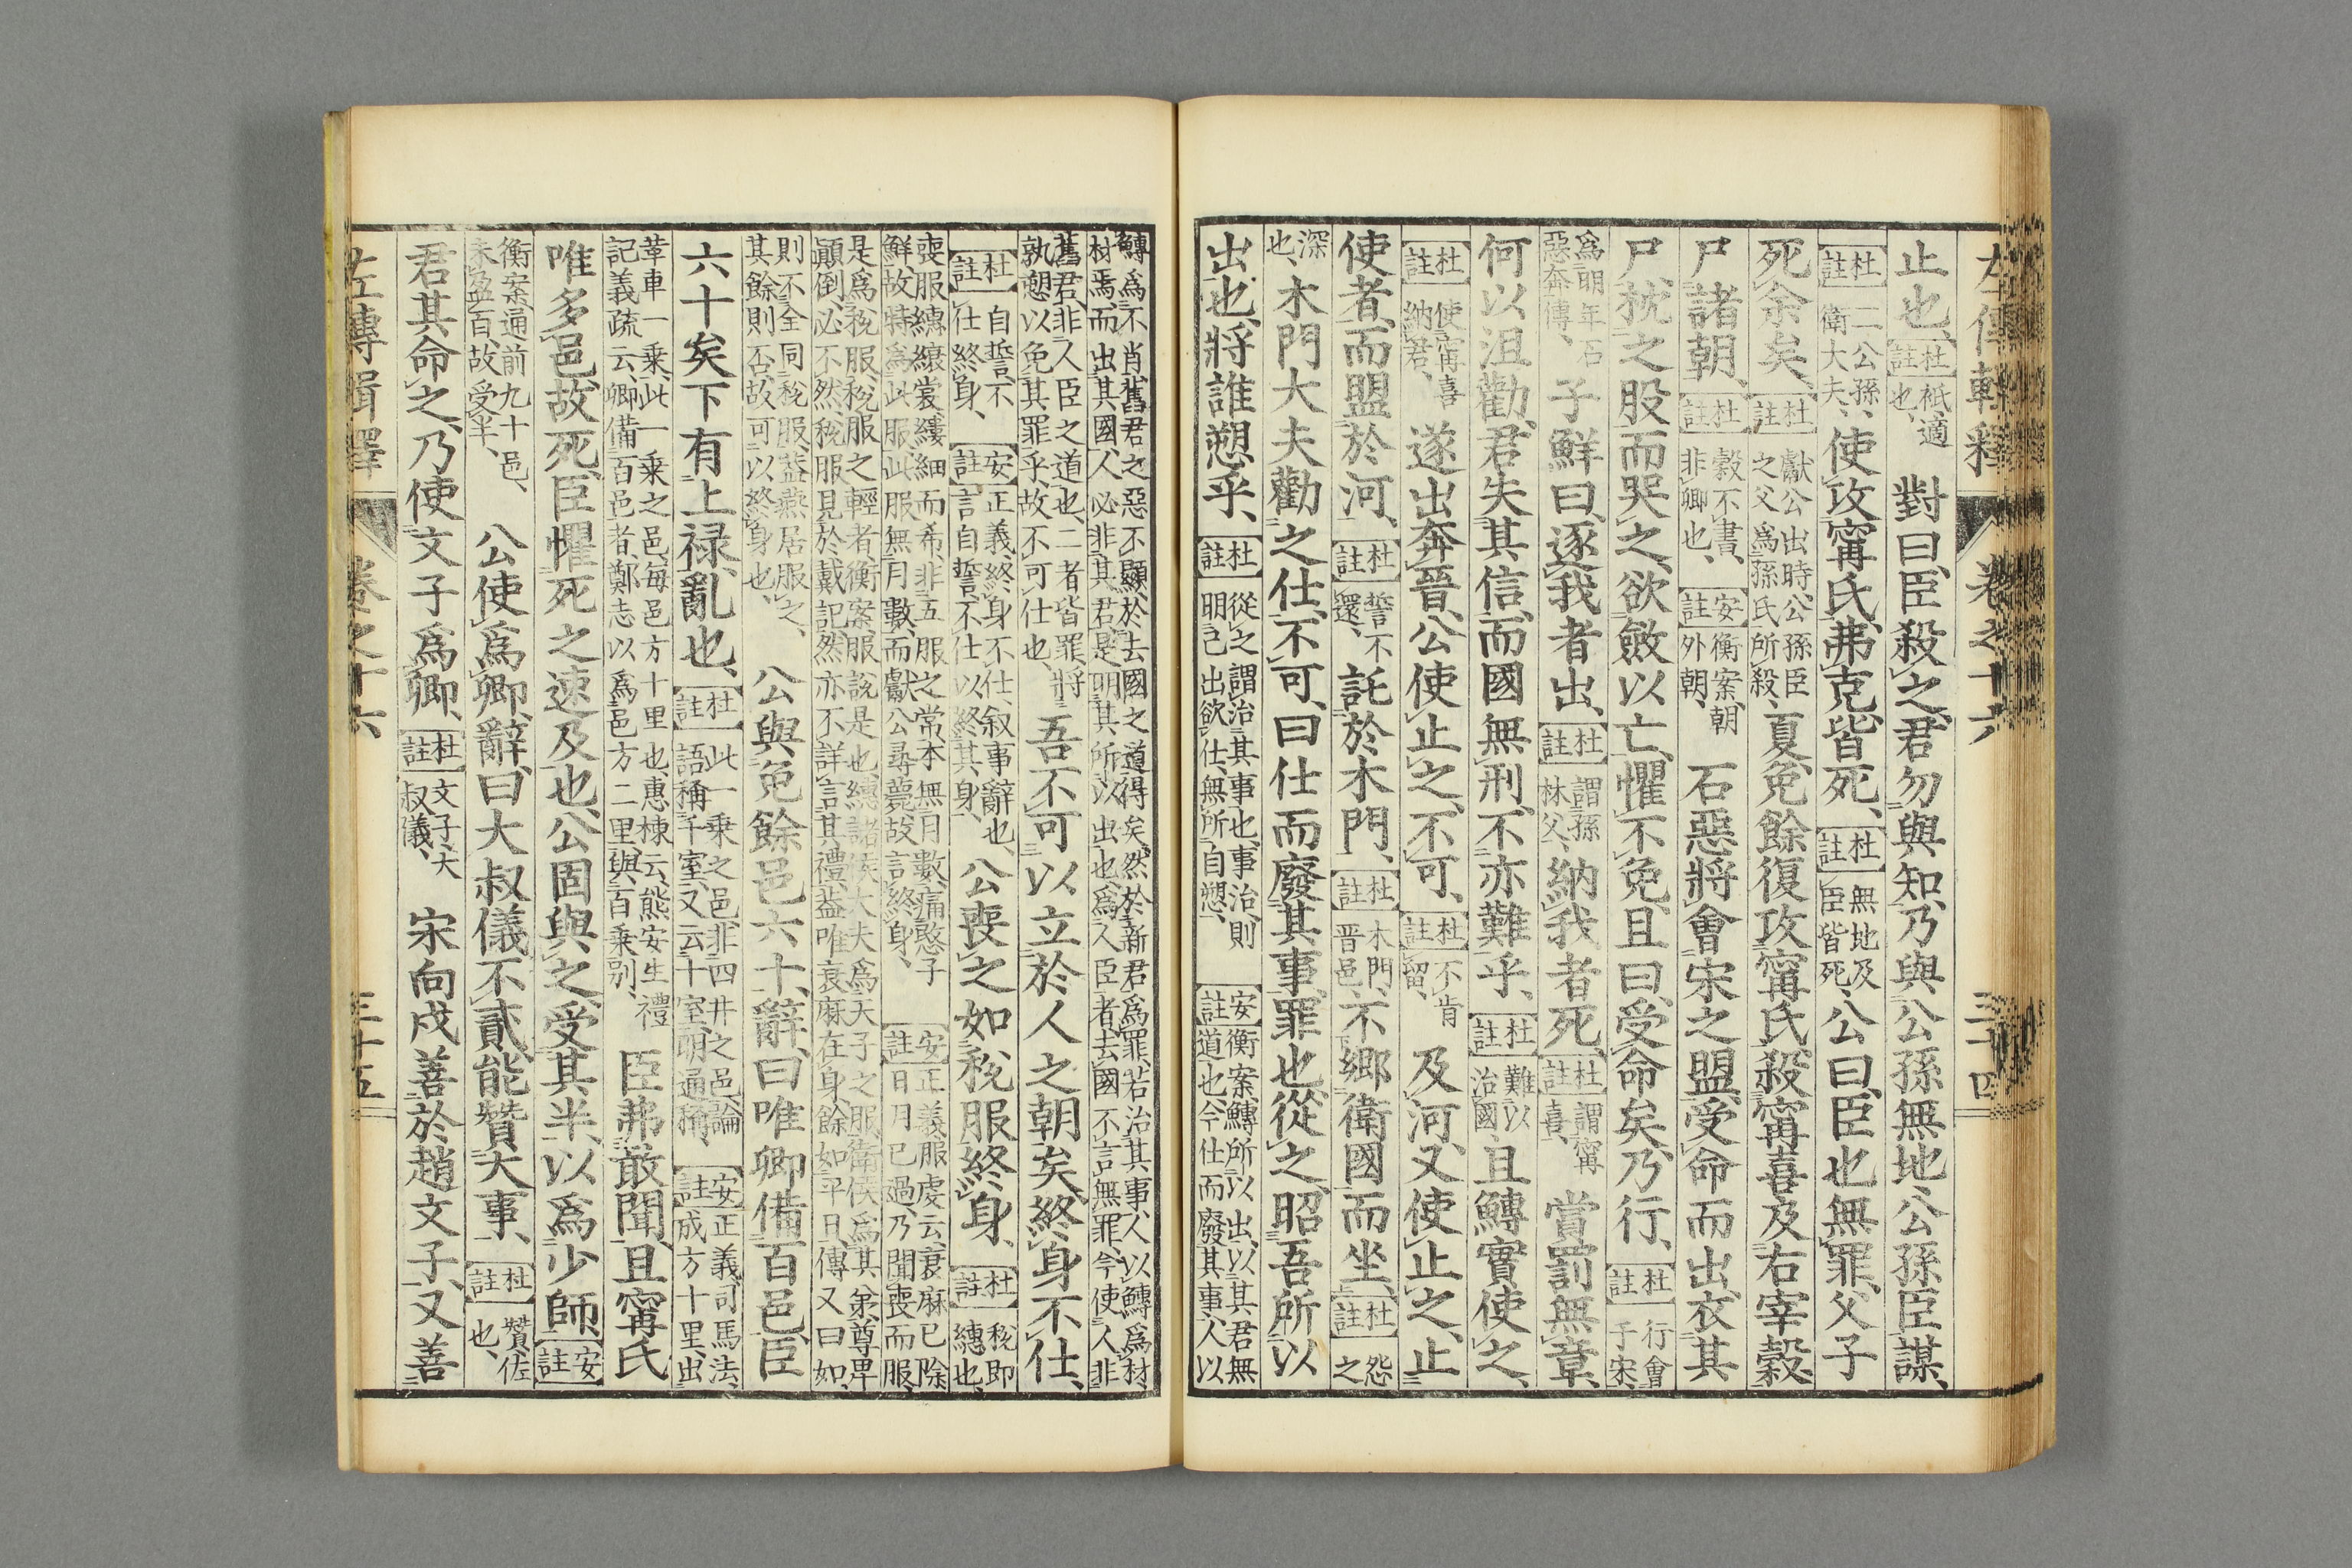 左傳輯釋 卷之十六 三十四
止也、杜註 祗適也、對曰、臣殺之、君勿與知、乃與公孫無地、公孫臣謀、
杜註 二公孫、衛大夫、使攻甯氏、弗克、皆死、杜註 無地及臣皆死、公曰、臣也無罪、父子
死余矣、杜註 獻公出時、公孫臣之父爲孫氏所殺、夏、免餘復攻甯氏、殺甯喜及右宰穀、
尸諸朝、杜註 穀不書、非卿也、安註 衡案、朝外朝、石惡將會宋之盟、受命而出、衣其
尸、枕之股而哭之、欲斂以亡、懼不免、且曰、受命矣、乃行、杜註 行會于宋、
爲明年石惡奔傳、子鮮曰、逐我者出、杜註 謂孫林父、納我者死、杜註 謂甯喜、賞罰無章、
何以沮勸、君失其信、而國無刑、不亦難乎、杜註 難以治國、且鱄實使之、
杜註 使甯喜納君、遂出奔晉、公使止之、不可、杜註 不肯留、及河、又使止之、止
使者、而盟於河、杜註 誓不還、託於木門、杜註 木門、晉邑、不鄉衛國而坐、杜註 怨之
深也、木門大夫勸之仕、不可、曰、仕而廢其事、罪也、從之、昭吾所以
出也、將誰愬乎、杜註 從之、謂治其事也、事治、則明己出欲仕、無所自愬、安註 衡案、鱄所以出、以其君無道也、今仕而廢其事、人以
鱄爲不肖、舊君之惡、不顯於去國之道得矣、然於新君爲罪、若治其事、人以鱄爲材、材焉而出其國、人必非其君、是明其所以出也、爲人臣者、去國不言無罪、今使人非
舊君、非人臣之道也、二者皆罪、將孰愬以免其罪乎、故不可仕也、吾不可以立於人之朝矣、終身不仕、
杜註 自誓不仕終身、安註 正義、終身不仕、叙事辭也、言自誓不仕以終其身、公喪之如稅服終身、杜註 稅即繐也、
喪服繐縗裳縷細而希、非五服之常、本無月數、痛愍子鮮、故特爲此服、此服無月數、而獻公尋薨、故言終身、安註 正義、服虔云、衰麻已除、日月已過、乃聞喪而服、
是爲稅服、稅服之輕者、衡案、服說是也、繐諸侯大夫爲天子之服、衛侯爲其弟、尊卑顚倒、必不然、稅服見於戴記、然亦不詳言其禮、蓋唯衰麻在身、餘如平日、傳又曰如、
則不全同稅服、蓋燕居服之、其餘則否、故可以終身也、公與免餘邑六十、辭曰、唯卿備百邑、臣
六十矣、下有上祿、亂也、杜註 此一乘之邑、非四井之邑、論語稱千室、又云十室、明通稱、安註 正義、司馬法、成方十里、出
革車一乘、此一乘之邑、每邑方十里也、惠棟云、熊安生禮記義疏云、卿備百邑者、鄭志以爲邑方二里、與百乘別、臣弗敢聞、且甯氏
唯多邑、故死、臣懼死之速及也、公固與之、受其半、以爲少師、安註
衡案、通前九十邑、未盈百、故受半、公使爲卿、辭曰、大叔儀不貳、能贊大事、杜註 贊、佐也、
君其命之、乃使文子爲卿、杜註 文子、大叔儀、宋向戌善於趙文子、又善
左傳輯釋 卷之十六 三十五